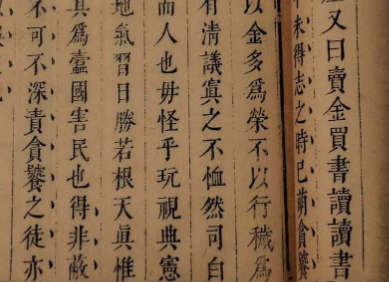 又曰賣金買書讀讀書
未得志之時已萌貪饕
以金多爲榮不以行穢爲
有清議寘之不恤然司白
而人也毋怪乎玩視典憲
地氣習日勝若根天眞惟
其爲蠧國害民也得非蔽
不可不深責貪饕之徒亦